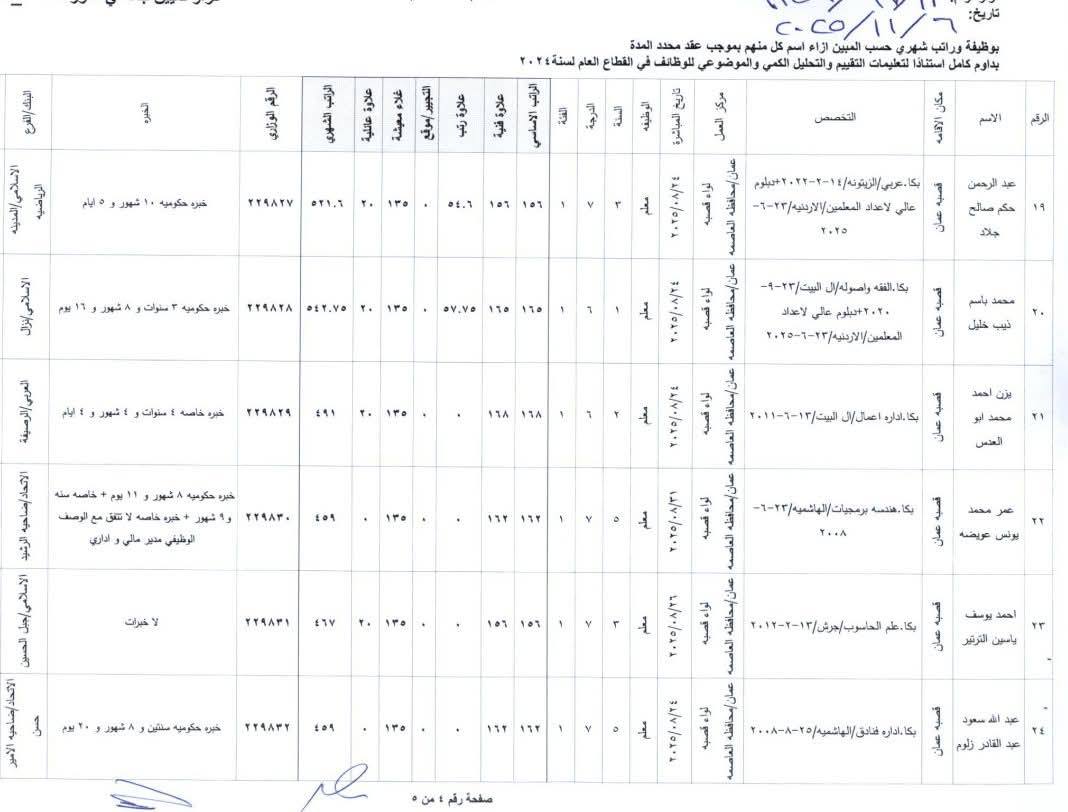 تاريخ: ٢٠٢٥/١١/٦
بوظيفة وراتب شهري حسب المبين ازاء اسم كل منهم بموجب عقد محدد المدة
بداوم كامل استنادًا لتعليمات التقييم والتحليل الكمي والموضوعي للوظائف في القطاع العام لسنة٢٠٢٤
الرقم الاسم مكان الاقامه التخصص مركز العمل تاريخ المباشرة الوظيفه السنة الدرجة الفئة الراتب الاساسي علاوة فنية علاوة رتب التجيير/موقع غلاء معيشة علاوة عائلية الراتب الشهري الرقم الوزاري الخبره البنك/الفرع
١٩ عبد الرحمن حكم صالح جلاد قصبة عمان بكا.عربي/الزيتونه/١٤-٢-٢٠٢٢+دبلوم عالي لاعداد المعلمين/الاردنيه/٢٣-٦-٢٠٢٥ عمان/محافظه العاصمه لواء قصبه ٢٠٢٥/٠٨/٢٤ معلم ٣ ٧ ١ ١٥٦ ١٥٦ ٥٤.٦ ٠ ١٣٥ ٢٠ ٥٢١.٦ ٢٢٩٨٢٧ خبره حكوميه ١٠ شهور و ٥ ايام الاسلامي/المدينه الرياضيه
٢٠ محمد باسم ذيب خليل قصبة عمان بكا.الفقه واصوله/ال البيت/٢٣-٩-٢٠٢٠+دبلوم عالي لاعداد المعلمين/الاردنيه/٢٣-٦-٢٠٢٥ عمان/محافظه العاصمه لواء قصبه ٢٠٢٥/٠٨/٢٤ معلم ١ ٦ ١ ١٦٥ ١٦٥ ٥٧.٧٥ ٠ ١٣٥ ٢٠ ٥٤٢.٧٥ ٢٢٩٨٢٨ خبره حكوميه ٣ سنوات و ٨ شهور و ١٦ يوم الاسلامي/نزال
٢١ يزن احمد محمد ابو العدس قصبة عمان بكا.اداره اعمال/ال البيت/١٣-٦-٢٠١١ عمان/محافظه العاصمه لواء قصبه ٢٠٢٥/٠٨/٢٤ معلم ٢ ٦ ١ ١٦٨ ١٦٨ ٠ ٠ ١٣٥ ٢٠ ٤٩١ ٢٢٩٨٢٩ خبره خاصه ٤ سنوات و ٤ شهور و ٤ ايام العربي/الرصيفة
٢٢ عمر محمد يونس عويضه قصبة عمان بكا.هندسه برمجيات/الهاشميه/٢٣-٦-٢٠٠٨ عمان/محافظه العاصمه لواء قصبه ٢٠٢٥/٠٨/٣١ معلم ٥ ٧ ١ ١٦٢ ١٦٢ ٠ ٠ ١٣٥ ٠ ٤٥٩ ٢٢٩٨٣٠ خبره حكوميه ٨ شهور و ١١ يوم + خاصه سنه و٩ شهور + خبره خاصه لا تتفق مع الوصف الوظيفي مدير مالي و اداري الاتحاد/ضاحيه الرشيد
٢٣ احمد يوسف ياسين الترتير قصبة عمان بكا.علم الحاسوب/جرش/١٣-٢-٢٠١٢ عمان/محافظه العاصمه لواء قصبه ٢٠٢٥/٠٨/٢٦ معلم ٣ ٧ ١ ١٥٦ ١٥٦ ٠ ٠ ١٣٥ ٢٠ ٤٦٧ ٢٢٩٨٣١ لا خبرات الاسلامي/جبل الحسين
٢٤ عبد الله سعود عبد القادر زلوم قصبة عمان بكا.اداره فنادق/الهاشميه/٢٥-٨-٢٠٠٨ عمان/محافظه العاصمه لواء قصبه ٢٠٢٥/٠٨/٢٤ معلم ٥ ٧ ١ ١٦٢ ١٦٢ ٠ ٠ ١٣٥ ٠ ٤٥٩ ٢٢٩٨٣٢ خبره حكوميه سنتين و ٨ شهور و ٢٠ يوم الاتحاد/ضاحيه الامير حسن
صفحة رقم ٤ من ٥